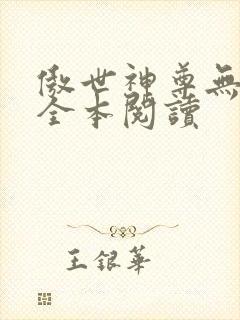 傲世神尊無
全本閱讀
王銀華